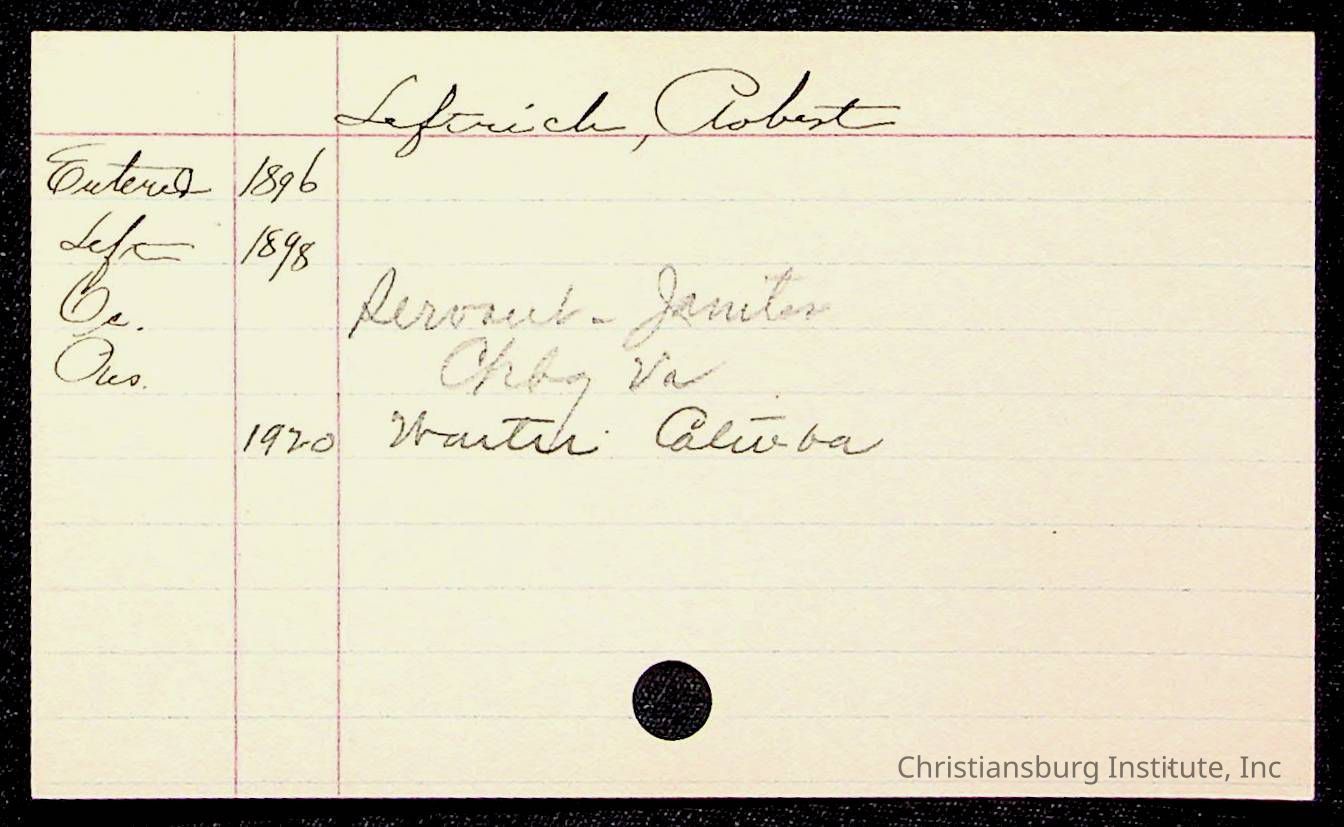 Leftrich, Robert
Entered 1896
Left 1898
Oc. Servant - Janitor
Res. Chbg Va
1920 Waiter
Christiansburg Institute, Inc